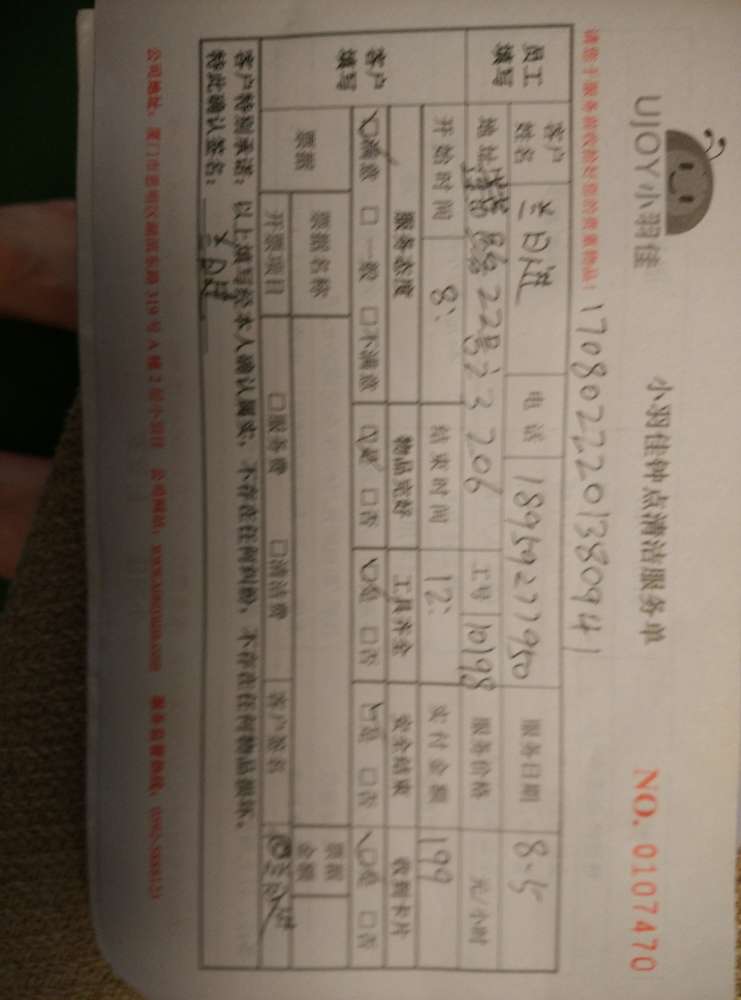 UJOY小羽佳
小羽佳钟点清洁服务单
NO. 0107470
请您于服务前收拾好您的贵重物品!
1708022201380941
员工填写 客户姓名 兰日进 电话 18959277950 服务日期 8.5
地址 22号 206 工号 10198 服务价格 元/小时
开始时间 8: 结束时间 12: 实付金额 199
客户填写 服务态度 物品完好 工具齐全 安全结束 收到卡片
☑满意 □一般 □不满意 ☑是 □否 ☑是 □否 ☑是 □否 ☑是 □否
票据 票据名称 票据金额
开票项目 □服务费 □清洁费 客户签名
客户特别承诺:以上填写经本人确认属实,不存在任何纠纷,不存在任何物品损坏。
特此确认签名: 兰日进
公司地址:厦门市思明区 319号A栋2层小羽佳 公司网站: 服务监督热线: